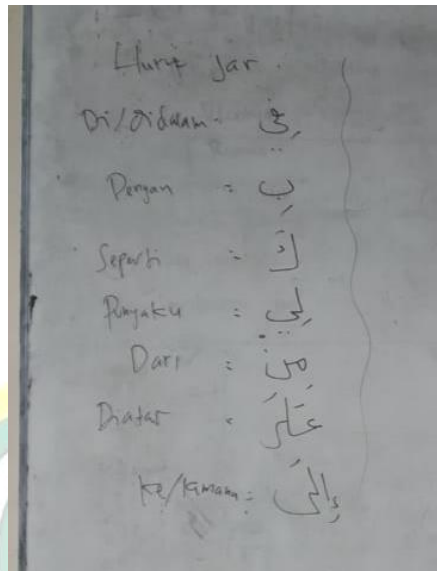 Huruf jar.
Di/didalam = فِي
Dengan = بِ
Seperti = كَ
Punyaku = لِي
Dari = مِنْ
Diatas = عَلَى
Ke/kemana = إِلَى